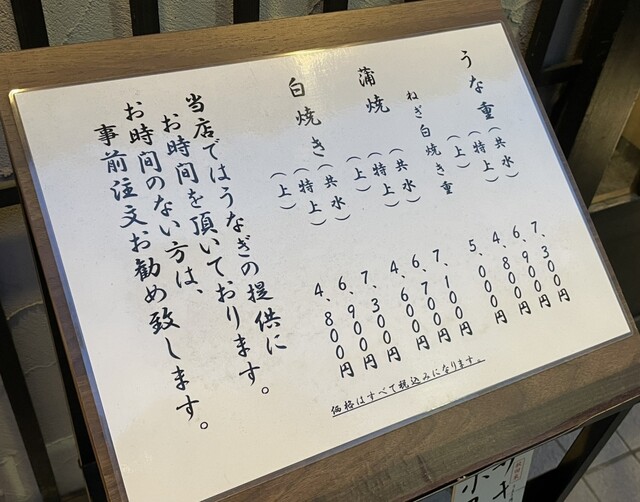 うな重（共水）　7、300円
（特上）　6、900円
（上）　4、800円
ねぎ白焼き重　5、000円
蒲焼（共水）　7、100円
（特上）　6、700円
（上）　4、600円
白焼き（共水）　7、300円
（特上）　6、900円
（上）　4、800円
価格はすべて税込みになります。
当店ではうなぎの提供に
お時間を頂いております。
お時間のない方は、
事前注文お勧め致します。